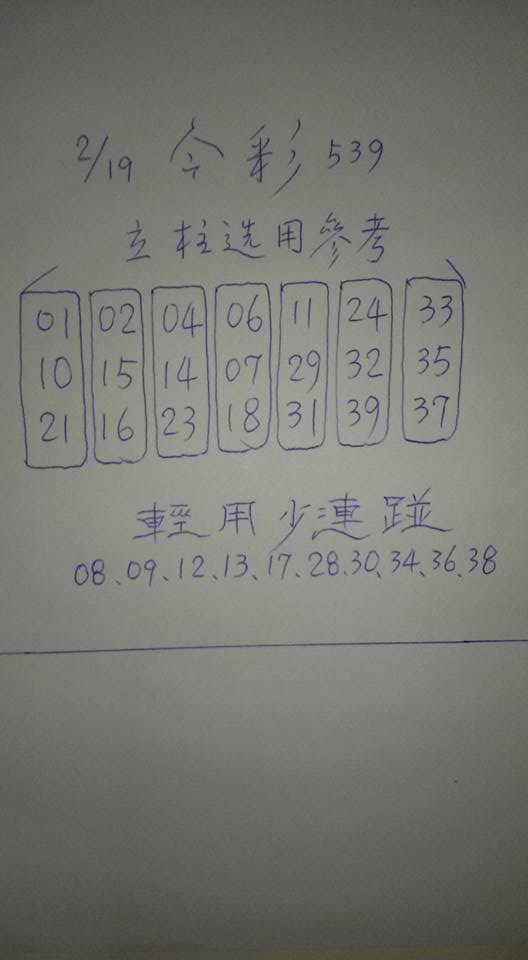 2/19 今彩539
立柱选用參考
01 02 04 06 11 24 33
10 15 14 07 29 32 35
21 16 23 18 31 39 37
輕用少連踫
08、09、12、13、17、28、30、34、36、38